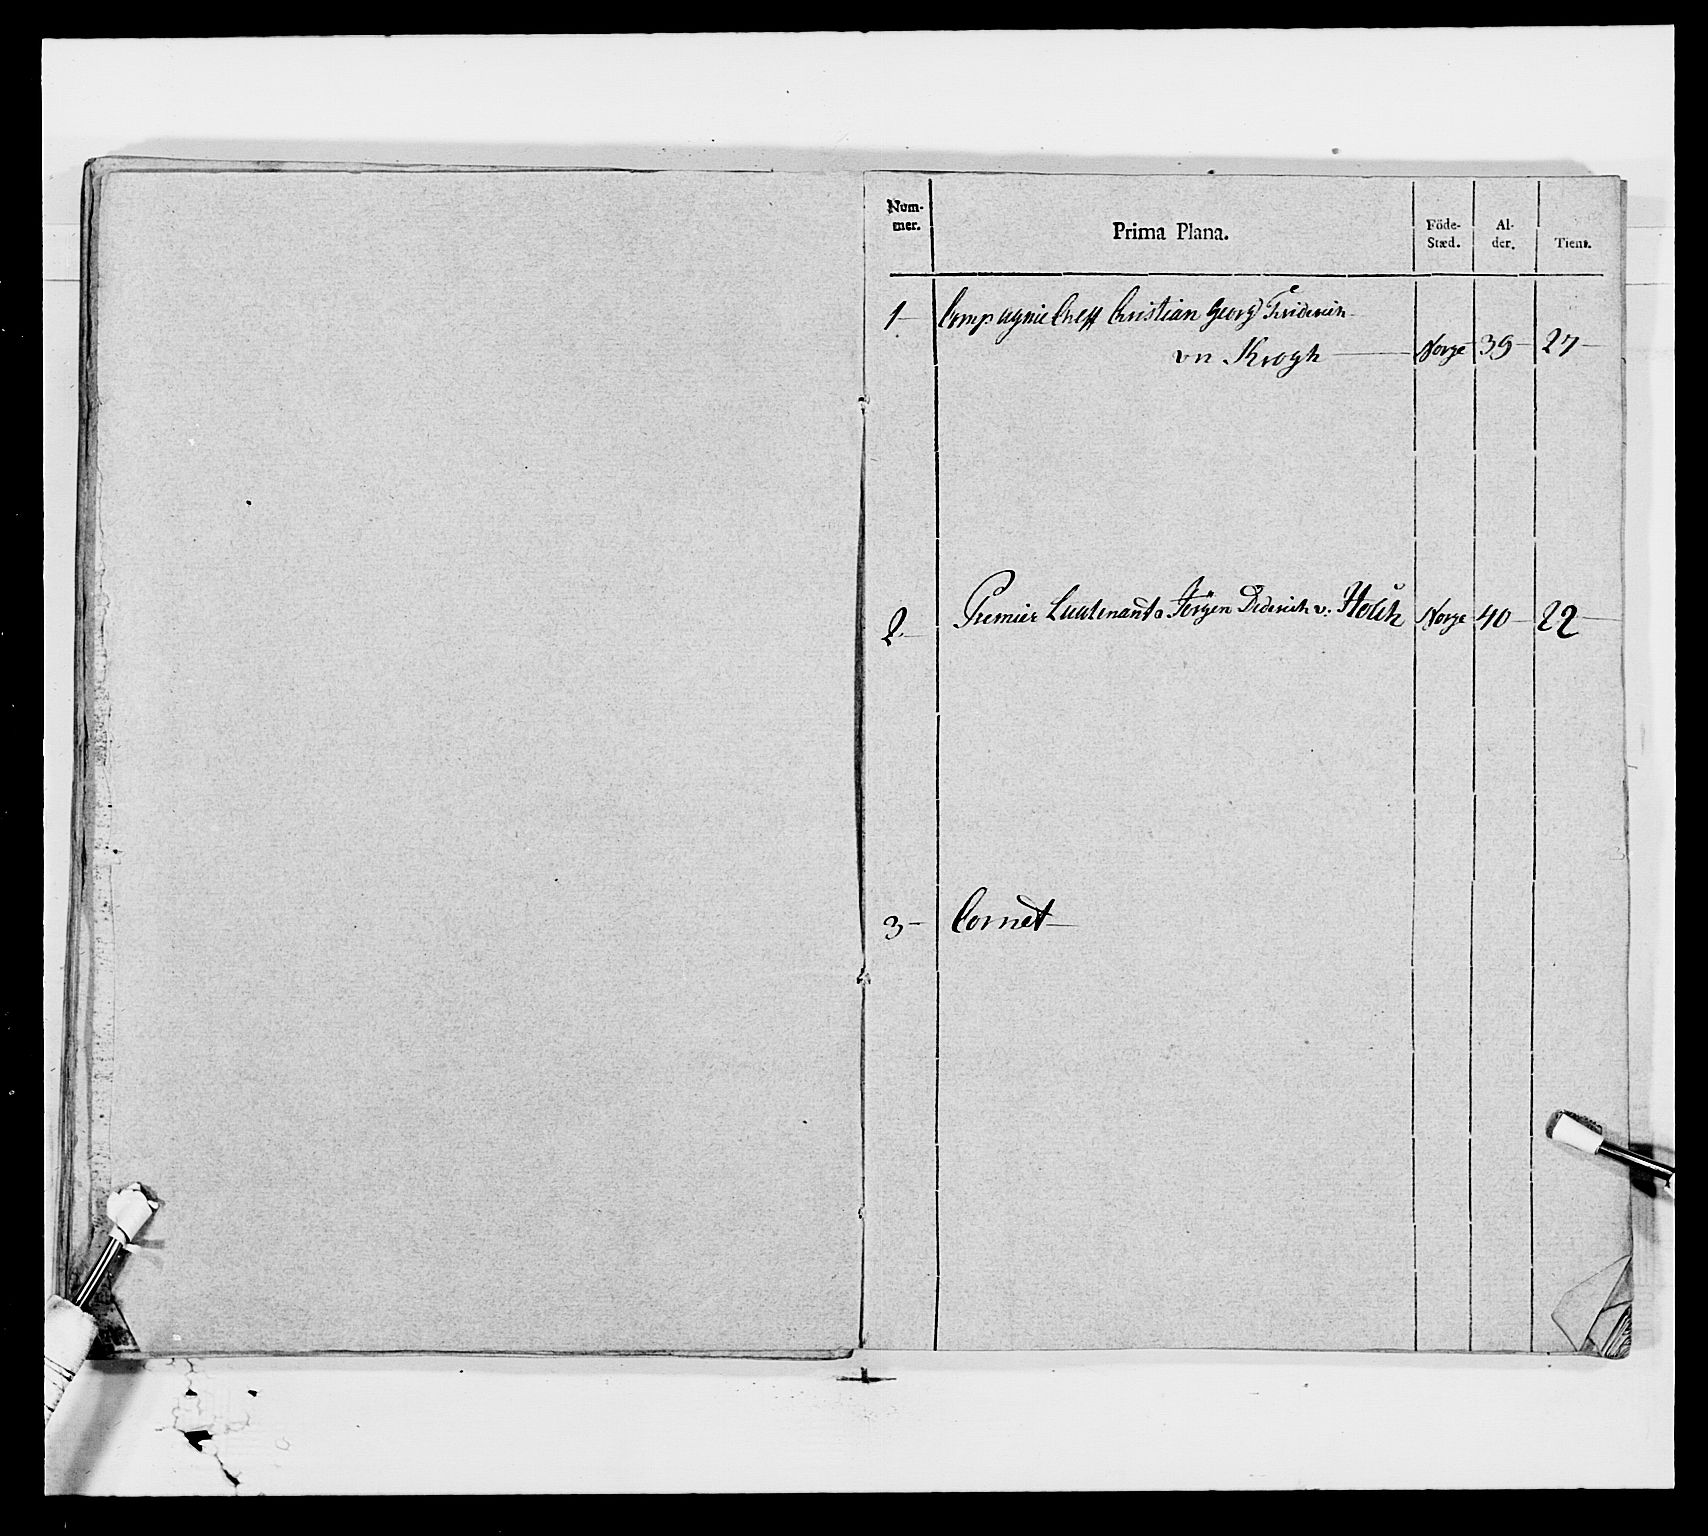 Nom-
mer.
Prima Plana.
Föde-
Stæd.
Al-
der.
Tient.
1 Compagnie Cheff Christian Georg Friderich
vn Krogh Norge 39 27
2. Premier Lieutenant Jörgen Diderich v. Norge 40 22
3 Cornet